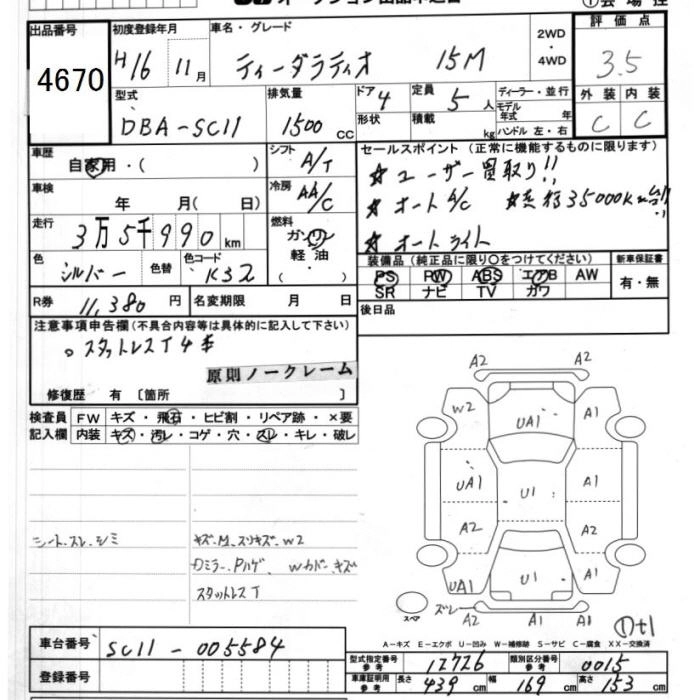 出品番号 初度登録年月 車名・グレード 2WD・4WD 評価点
4670 H16 11月 ティーダラティオ 15M 3.5
型式 排気量 ドア 4 定員 5人 ディーラー・並行 外装 内装
DBA-SC11 1500cc 形状 積載 kg モデル年式 年 ハンドル 左・右 C C
車歴 自家用・( ) シフト A/T セールスポイント(正常に機能するものに限ります)
☆ユーザー買取り!!
車検 年 月( 日) 冷房 AA/C ☆オートA/C
走行 3万5千990km 燃料 ガソリン・軽油・ ☆オートライト
色 シルバー 色替 色コード K32 装備品(純正品に限り○をつけてください) 新車保証書
PS PW ABS エアB AW 有・無
SR ナビ TV カワ
R券 11,380円 名変期限 月 日 後日品
注意事項申告欄(不具合内容等は具体的に記入して下さい)
。スタットレスT4本
原則ノークレーム
修復歴 有 〔箇所 〕
検査員 FW キズ・飛石・ヒビ割・リペア跡・×要
記入欄 内装 キズ・汚レ・コゲ・穴・スレ・キレ・破レ
シート.スレ.シミ キズ.M.スリキズ.W2
Dミラー.Pハゲ. Wカバー.キズ
スタットレスT
A2 A2
W2 UA1 A1
UA1 U1 A1
A2 A2
UA1 U1 A1
スペア ズレ A2 A1 A1
①t1
A-キズ E-エクボ U-凹み W-補修跡 S-サビ C-腐食 XX-交換済
車台番号 SC11-005584
型式指定番号 参考 12726 類別区分番号 参考 0015
登録番号 車庫証明用 参考 長さ 439cm 幅 169cm 高さ 153cm